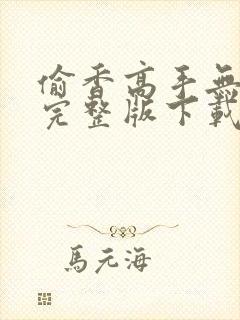 偷香高手無
完整版下載
馬元海